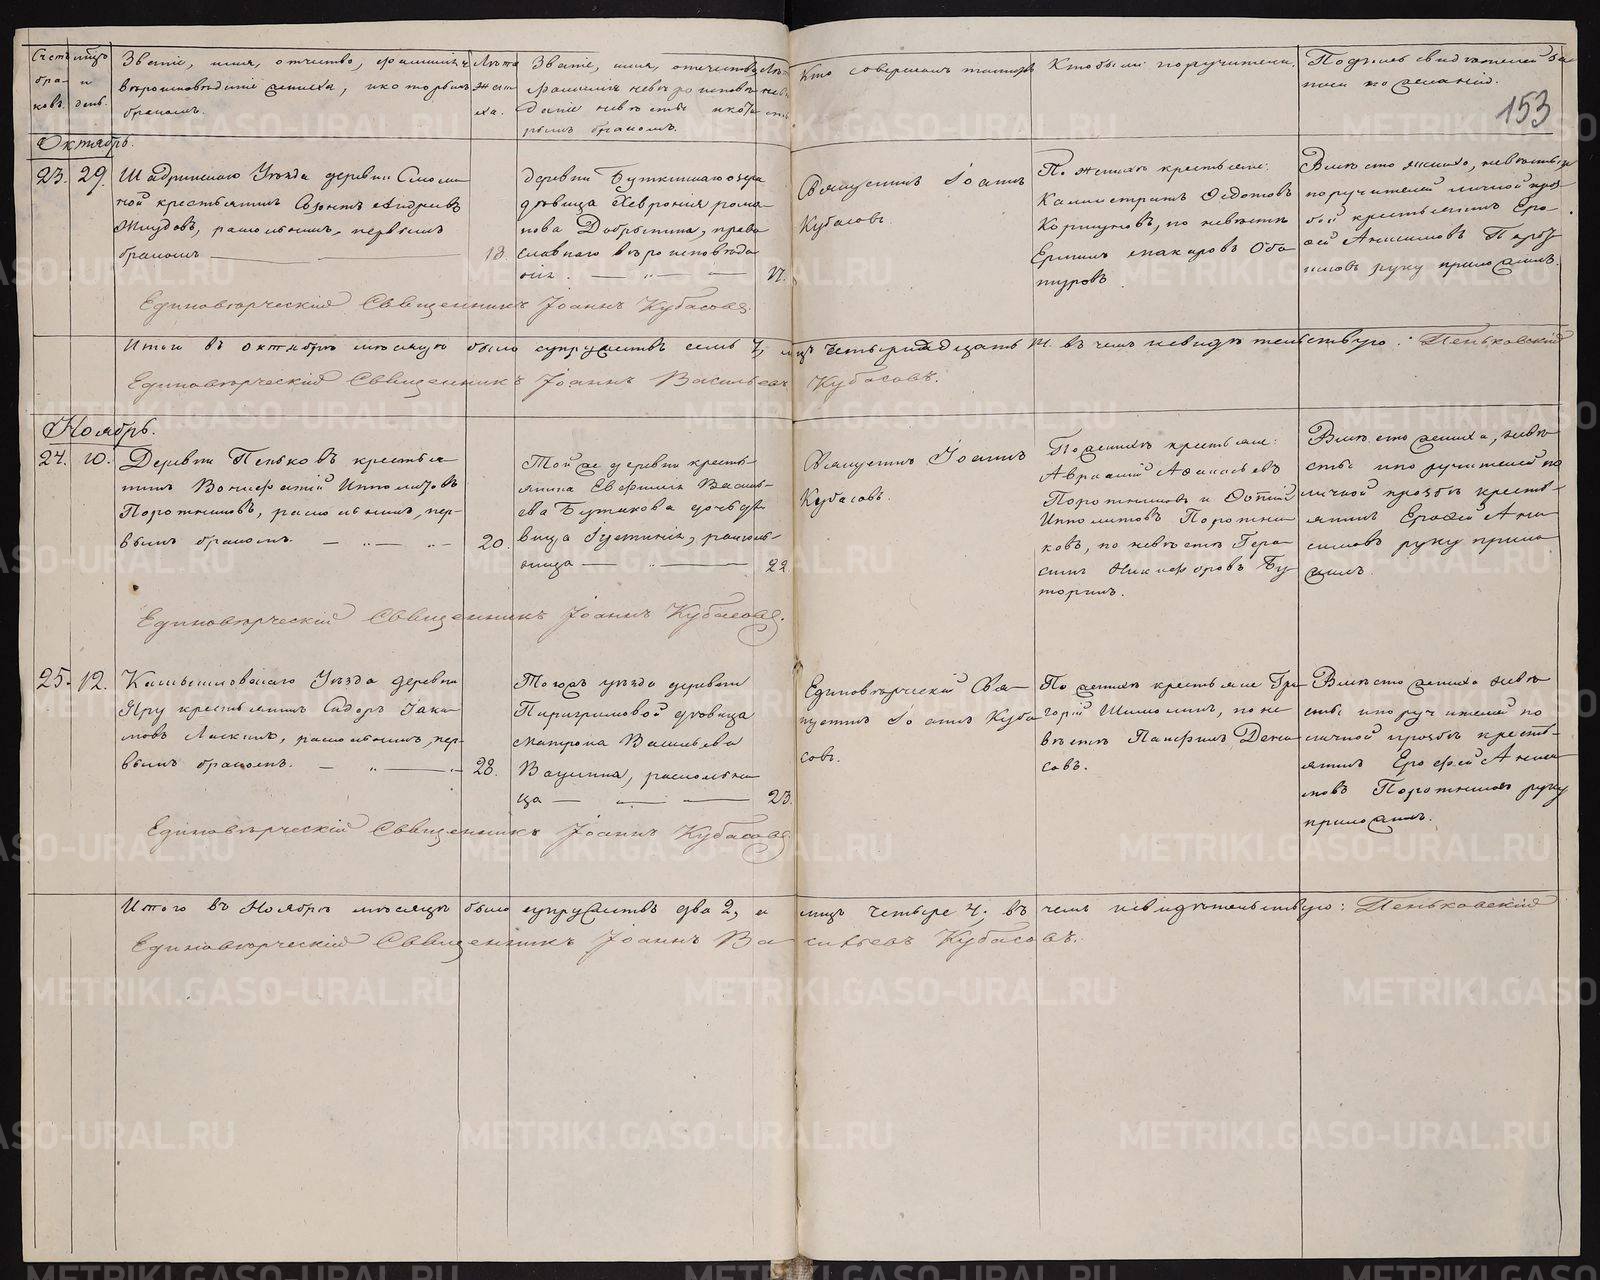 Счетъ
бра-
ковъ.
мѣсцъ
и
день.
Званіе, имя, отчество, фамилія и
вѣроисповѣданіе жениха, и которымъ
бракомъ.
Лѣта
жени
ха.
Званіе, имя, отечество,
фамилія и вѣроисповѣ-
даніе невѣсты и кото-
рымъ бракомъ.
Лѣта
невѣ
сты
Кто совершалъ таинство
Кто были поручители
Подпись свидѣтелей за-
писи по желанію.
153
Октябрь.
23. 29.
Шадринскаго Уѣзда деревни Смоли
ной крестьянинъ Андреевъ
раскольникъ, первымъ
бракомъ
18.
деревни Буткинскаго озера
дѣвица Хеврония рома-
нова Добрынина, право
славнаго вѣроисповѣда
нія.
17.
Священникъ Іоаннъ
Кубасовъ
По женихѣ крестьяне:
Калистратъ Федотовъ
Коршуновъ, по невѣстѣ
Ермилъ Макаровъ Оба
туровъ
Вмѣсто жениха, невѣсты и
поручителей личной прозь-
бой крестьянинъ Еро-
фей Анисимовъ Порот
никовъ руку приложилъ.
Единовѣрческій Священникъ Іоаннъ Кубасовъ.
Итого въ октябрѣ мѣсяцѣ было супружествъ семь 7, лицъ четырнадцать 14. въ чемъ и свидѣтельствую: Пеньковскій
Единовѣрческій Священникъ Іоаннъ Васильевъ Кубасовъ.
Ноябрь.
24. 10.
Деревни Пеньковъ крестья
нинъ Вонифатій Ипполитовъ
Поротниковъ, раскольникъ, пер-
вымъ бракомъ.
20.
Той же деревни кресть-
янина Евфимія Василь-
ева Бутакова дочь дѣ-
вица Іустинія, расколь-
ница
22
Священникъ Іоаннъ
Кубасовъ.
По женихѣ крестьяне:
Авраамій Афанасьевъ
Поротниковъ и Фотій
Ипполитовъ Поротни
ковъ, по невѣстѣ Гера
симъ Никифоровъ Бу
торинъ.
Вмѣсто жениха, невѣ
сты и поручителей по
личной прозьбѣ кресть-
янинъ Ерофей Ани
симовъ руку прило
жилъ.
Единовѣрческій Священникъ Іоаннъ Кубасовъ.
25. 12.
Камышловскаго Уѣзда деревни
Яру крестьянинъ Сидоръ Іаки
мовъ Ласкинъ, раскольникъ, пер-
вымъ бракомъ.
28.
Тогожъ уѣзда деревни
Пиригримовой дѣвица
Матрона Васильева
раскольни
ца
23.
Единовѣрческій Свя-
щенникъ Іоаннъ Куба
совъ.
По женихѣ крестьяне Гри
горій Шимолинъ, по не
вѣстѣ Панфилъ Дени
совъ.
Вмѣсто жениха невѣ
сты и поручителей по
личной прозьбѣ кресть-
янинъ Ерофей Аниси
мовъ Поротниковъ руку
приложилъ.
Единовѣрческій Священникъ Іоаннъ Кубасовъ.
Итого въ Ноябрѣ мѣсяцѣ было супружествъ два 2, а лицъ четыре 4; въ чемъ и свидѣтельствую: Пеньковскій
Единовѣрческій Священникъ Іоаннъ Васильевъ Кубасовъ.
METRIKI.GASO-URAL.RU